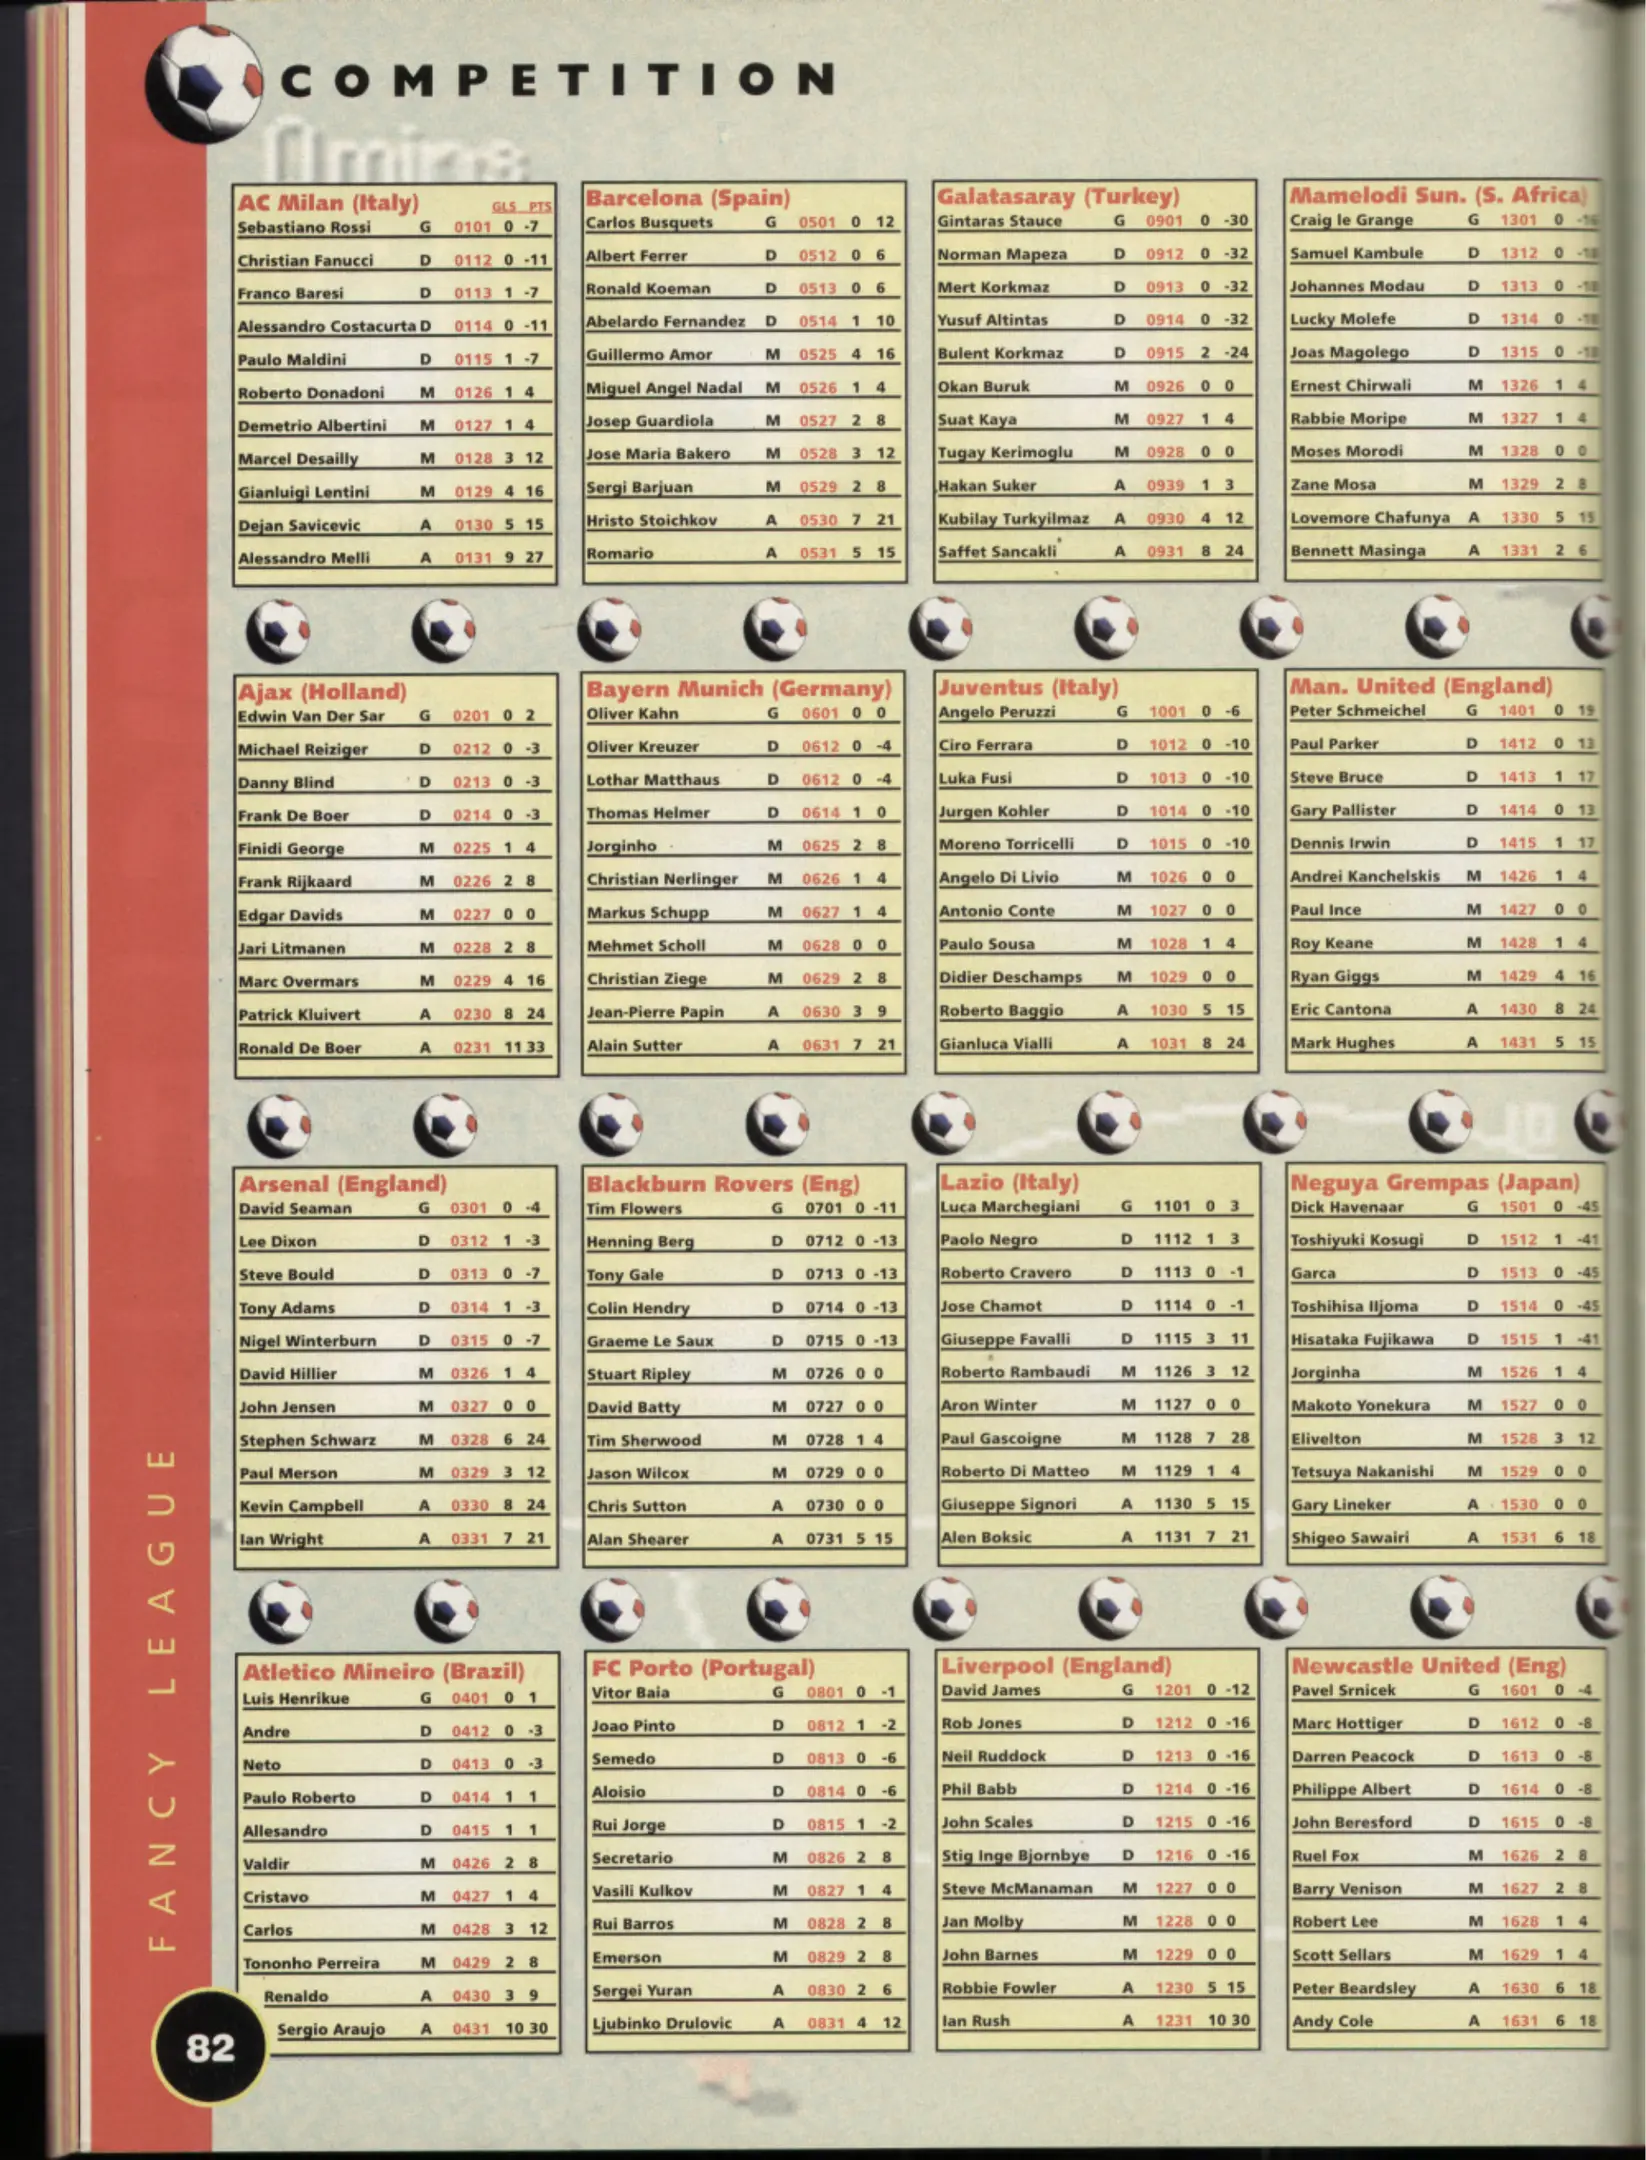 COMPETITION
AC Milan (Italy) GLS PTS
Sebastiano Rossi G 0101 0 -7
Christian Fanucci D 0112 0 -11
Franco Baresi D 0113 1 -7
Alessandro Costacurta D 0114 0 -11
Paulo Maldini D 0115 1 -7
Roberto Donadoni M 0126 1 4
Demetrio Albertini M 0127 1 4
Marcel Desailly M 0128 3 12
Gianluigi Lentini M 0129 4 16
Dejan Savicevic A 0130 5 15
Alessandro Melli A 0131 9 27
Barcelona (Spain)
Carlos Busquets G 0501 0 12
Albert Ferrer D 0512 0 6
Ronald Koeman D 0513 0 6
Abelardo Fernandez D 0514 1 10
Guillermo Amor M 0525 4 16
Miguel Angel Nadal M 0526 1 4
Josep Guardiola M 0527 2 8
Jose Maria Bakero M 0528 3 12
Sergi Barjuan M 0529 2 8
Hristo Stoichkov A 0530 7 21
Romario A 0531 5 15
Galatasaray (Turkey)
Gintaras Stauce G 0901 0 -30
Norman Mapeza D 0912 0 -32
Mert Korkmaz D 0913 0 -32
Yusuf Altintas D 0914 0 -32
Bulent Korkmaz D 0915 2 -24
Okan Buruk M 0926 0 0
Suat Kaya M 0927 1 4
Tugay Kerimoglu M 0928 0 0
Hakan Suker A 0939 1 3
Kubilay Turkyilmaz A 0930 4 12
Saffet Sancakli A 0931 8 24
Mamelodi Sun. (S. Africa)
Craig le Grange G 1301 0
Samuel Kambule D 1312 0
Johannes Modau D 1313 0
Lucky Molefe D 1314 0
Joas Magolego D 1315 0
Ernest Chirwali M 1326 1 4
Rabbie Moripe M 1327 1 4
Moses Morodi M 1328 0 0
Zane Mosa M 1329 2 8
Lovemore Chafunya A 1330 5 15
Bennett Masinga A 1331 2 6
Ajax (Holland)
Edwin Van Der Sar G 0201 0 2
Michael Reiziger D 0212 0 -3
Danny Blind D 0213 0 -3
Frank De Boer D 0214 0 -3
Finidi George M 0225 1 4
Frank Rijkaard M 0226 2 8
Edgar Davids M 0227 0 0
Jari Litmanen M 0228 2 8
Marc Overmars M 0229 4 16
Patrick Kluivert A 0230 8 24
Ronald De Boer A 0231 11 33
Bayern Munich (Germany)
Oliver Kahn G 0601 0 0
Oliver Kreuzer D 0612 0 -4
Lothar Matthaus D 0612 0 -4
Thomas Helmer D 0614 1 0
Jorginho M 0625 2 8
Christian Nerlinger M 0626 1 4
Markus Schupp M 0627 1 4
Mehmet Scholl M 0628 0 0
Christian Ziege M 0629 2 8
Jean-Pierre Papin A 0630 3 9
Alain Sutter A 0631 7 21
Juventus (Italy)
Angelo Peruzzi G 1001 0 -6
Ciro Ferrara D 1012 0 -10
Luka Fusi D 1013 0 -10
Jurgen Kohler D 1014 0 -10
Moreno Torricelli D 1015 0 -10
Angelo Di Livio M 1026 0 0
Antonio Conte M 1027 0 0
Paulo Sousa M 1028 1 4
Didier Deschamps M 1029 0 0
Roberto Baggio A 1030 5 15
Gianluca Vialli A 1031 8 24
Man. United (England)
Peter Schmeichel G 1401 0 19
Paul Parker D 1412 0 13
Steve Bruce D 1413 1 17
Gary Pallister D 1414 0 13
Dennis Irwin D 1415 1 17
Andrei Kanchelskis M 1426 1 4
Paul Ince M 1427 0 0
Roy Keane M 1428 1 4
Ryan Giggs M 1429 4 16
Eric Cantona A 1430 8 24
Mark Hughes A 1431 5 15
Arsenal (England)
David Seaman G 0301 0 -4
Lee Dixon D 0312 1 -3
Steve Bould D 0313 0 -7
Tony Adams D 0314 1 -3
Nigel Winterburn D 0315 0 -7
David Hillier M 0326 1 4
John Jensen M 0327 0 0
Stephen Schwarz M 0328 6 24
Paul Merson M 0329 3 12
Kevin Campbell A 0330 8 24
Ian Wright A 0331 7 21
Blackburn Rovers (Eng)
Tim Flowers G 0701 0 -11
Henning Berg D 0712 0 -13
Tony Gale D 0713 0 -13
Colin Hendry D 0714 0 -13
Graeme Le Saux D 0715 0 -13
Stuart Ripley M 0726 0 0
David Batty M 0727 0 0
Tim Sherwood M 0728 1 4
Jason Wilcox M 0729 0 0
Chris Sutton A 0730 0 0
Alan Shearer A 0731 5 15
Lazio (Italy)
Luca Marchegiani G 1101 0 3
Paolo Negro D 1112 1 3
Roberto Cravero D 1113 0 -1
Jose Chamot D 1114 0 -1
Giuseppe Favalli D 1115 3 11
Roberto Rambaudi M 1126 3 12
Aron Winter M 1127 0 0
Paul Gascoigne M 1128 7 28
Roberto Di Matteo M 1129 1 4
Giuseppe Signori A 1130 5 15
Alen Boksic A 1131 7 21
Neguya Grempas (Japan)
Dick Havenaar G 1501 0 -45
Toshiyuki Kosugi D 1512 1 -41
Garca D 1513 0 -45
Toshihisa Iljoma D 1514 0 -45
Hisataka Fujikawa D 1515 1 -41
Jorginha M 1526 1 4
Makoto Yonekura M 1527 0 0
Elivelton M 1528 3 12
Tetsuya Nakanishi M 1529 0 0
Gary Lineker A 1530 0 0
Shigeo Sawairi A 1531 6 18
Atletico Mineiro (Brazil)
Luis Henrikue G 0401 0 1
Andre D 0412 0 -3
Neto D 0413 0 -3
Paulo Roberto D 0414 1 1
Allesandro D 0415 1 1
Valdir M 0426 2 8
Cristavo M 0427 1 4
Carlos M 0428 3 12
Tononho Perreira M 0429 2 8
Renaldo A 0430 3 9
Sergio Araujo A 0431 10 30
FC Porto (Portugal)
Vitor Baia G 0801 0 -1
Joao Pinto D 0812 1 -2
Semedo D 0813 0 -6
Aloisio D 0814 0 -6
Rui Jorge D 0815 1 -2
Secretario M 0826 2 8
Vasili Kulkov M 0827 1 4
Rui Barros M 0828 2 8
Emerson M 0829 2 8
Sergei Yuran A 0830 2 6
Ljubinko Drulovic A 0831 4 12
Liverpool (England)
David James G 1201 0 -12
Rob Jones D 1212 0 -16
Neil Ruddock D 1213 0 -16
Phil Babb D 1214 0 -16
John Scales D 1215 0 -16
Stig Inge Bjornbye D 1216 0 -16
Steve McManaman M 1227 0 0
Jan Molby M 1228 0 0
John Barnes M 1229 0 0
Robbie Fowler A 1230 5 15
Ian Rush A 1231 10 30
Newcastle United (Eng)
Pavel Srnicek G 1601 0 -4
Marc Hottiger D 1612 0 -8
Darren Peacock D 1613 0 -8
Philippe Albert D 1614 0 -8
John Beresford D 1615 0 -8
Ruel Fox M 1626 2 8
Barry Venison M 1627 2 8
Robert Lee M 1628 1 4
Scott Sellars M 1629 1 4
Peter Beardsley A 1630 6 18
Andy Cole A 1631 6 18
FANCY LEAGUE
82